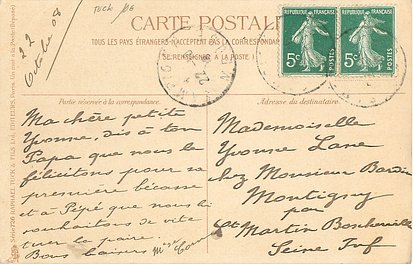 22
Octobre 08
TUCK
CARTE POSTALE
TOUS LES PAYS ÉTRANGERS N'ACCEPTENT PAS LA CORRESPONDANCE
SE RENSEIGNER À LA POSTE
RÉPUBLIQUE FRANÇAISE
5c
RÉPUBLIQUE FRANÇAISE
5c
Partie réservée à la correspondance.
Ma chère petite
Yvonne, dis à ton
Papa que nous le
félicitons pour sa
première bécasse
et à Pépé que nous lui
souhaitons de vite
tuer la paire.
Bons baisers
Adresse du destinataire.
Mademoiselle
Yvonne Lane
chez Monsieur Bardin
Montigny
par
St Martin Boscherville
Seine Inf